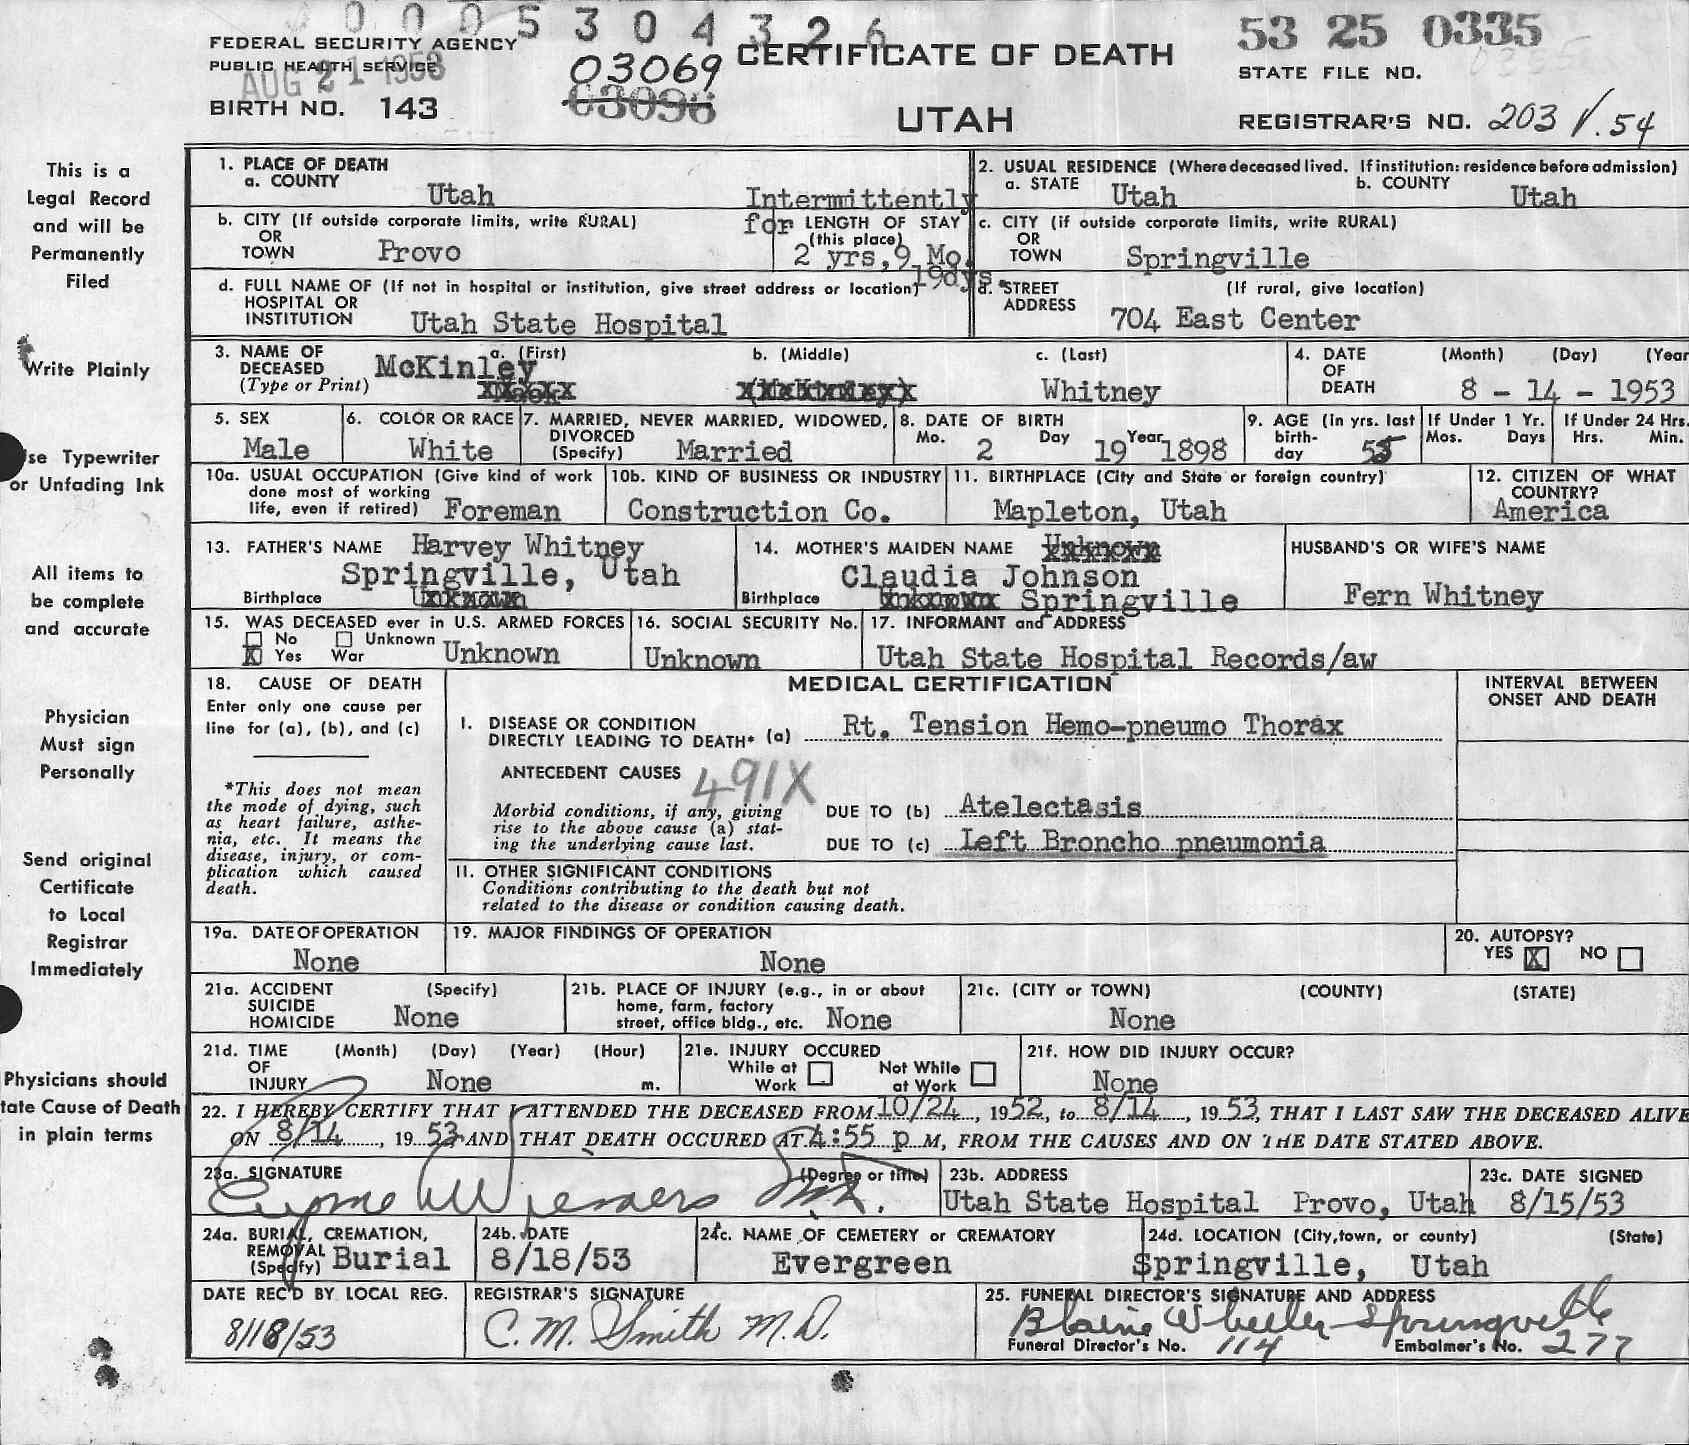 0005304326
53 25 0335
FEDERAL SECURITY AGENCY
PUBLIC HEALTH SERVICE
AUG 21 1953
BIRTH NO. 143
03069
03096
CERTIFICATE OF DEATH
UTAH
STATE FILE NO.
REGISTRAR'S NO. 203 V.54
This is a
Legal Record
and will be
Permanently
Filed
Write Plainly
se Typewriter
or Unfading Ink
All items to
be complete
and accurate
Physician
Must sign
Personally
Send original
Certificate
to Local
Registrar
Immediately
Physicians should
tate Cause of Death
in plain terms
1. PLACE OF DEATH
a. COUNTY Utah
b. CITY (If outside corporate limits, write RURAL)
OR
TOWN Provo
Intermittently
for LENGTH OF STAY
(this place)
2 yrs,9 Mo.
19dys.
d. FULL NAME OF (If not in hospital or institution, give street address or location)
HOSPITAL OR
INSTITUTION Utah State Hospital
2. USUAL RESIDENCE (Where deceased lived. If institution: residence before admission)
a. STATE Utah b. COUNTY Utah
c. CITY (if outside corporate limits, write RURAL)
OR
TOWN Springville
d. STREET (If rural, give location)
ADDRESS 704 East Center
3. NAME OF DECEASED (Type or Print)
a. (First) McKinley
b. (Middle)
c. (Last) Whitney
4. DATE OF DEATH (Month) (Day) (Year
8 - 14 - 1953
5. SEX Male
6. COLOR OR RACE White
7. MARRIED, NEVER MARRIED, WIDOWED,
DIVORCED
(Specify) Married
8. DATE OF BIRTH
Mo. 2 Day 19 Year 1898
9. AGE (in yrs. last birth-day 55
If Under 1 Yr. Mos. Days
If Under 24 Hrs. Hrs. Min.
10a. USUAL OCCUPATION (Give kind of work
done most of working
life, even if retired) Foreman
10b. KIND OF BUSINESS OR INDUSTRY
Construction Co.
11. BIRTHPLACE (City and State or foreign country)
Mapleton, Utah
12. CITIZEN OF WHAT
COUNTRY?
America
13. FATHER'S NAME Harvey Whitney
Springville, Utah
Birthplace Unknown
14. MOTHER'S MAIDEN NAME Unknown
Claudia Johnson
Birthplace Unknown Springville
HUSBAND'S OR WIFE'S NAME
Fern Whitney
15. WAS DECEASED ever in U.S. ARMED FORCES
No Unknown
X Yes War Unknown
16. SOCIAL SECURITY No.
Unknown
17. INFORMANT and ADDRESS
Utah State Hospital Records/aw
18. CAUSE OF DEATH
Enter only one cause per
line for (a), (b), and (c)
*This does not mean
the mode of dying, such
as heart failure, asthe-
nia, etc. It means the
disease, injury, or com-
plication which caused
death.
MEDICAL CERTIFICATION
I. DISEASE OR CONDITION
DIRECTLY LEADING TO DEATH* (a) Rt. Tension Hemo-pneumo Thorax
ANTECEDENT CAUSES 491X
Morbid conditions, if any, giving
rise to the above cause (a) stat-
ing the underlying cause last.
DUE TO (b) Atelectasis
DUE TO (c) Left Broncho pneumonia
II. OTHER SIGNIFICANT CONDITIONS
Conditions contributing to the death but not
related to the disease or condition causing death.
INTERVAL BETWEEN
ONSET AND DEATH
19a. DATE OF OPERATION
None
19. MAJOR FINDINGS OF OPERATION
None
20. AUTOPSY?
YES X NO
21a. ACCIDENT (Specify)
SUICIDE
HOMICIDE None
21b. PLACE OF INJURY (e.g., in or about
home, farm, factory
street, office bldg., etc. None
21c. (CITY or TOWN) (COUNTY) (STATE)
None
21d. TIME (Month) (Day) (Year) (Hour)
OF
INJURY None m.
21e. INJURY OCCURED
While at Work Not While at Work
21f. HOW DID INJURY OCCUR?
None
22. I HEREBY CERTIFY THAT I ATTENDED THE DECEASED FROM 10/24, 1952, to 8/14, 1953, THAT I LAST SAW THE DECEASED ALIVE
ON 8/14, 1953 AND THAT DEATH OCCURED AT 4:55 p M, FROM THE CAUSES AND ON THE DATE STATED ABOVE.
23a. SIGNATURE (Degree or title)
23b. ADDRESS
Utah State Hospital Provo, Utah
23c. DATE SIGNED
8/15/53
24a. BURIAL, CREMATION,
REMOVAL
(Specify) Burial
24b. DATE
8/18/53
24c. NAME OF CEMETERY or CREMATORY
Evergreen
24d. LOCATION (City,town, or county) (State)
Springville, Utah
DATE REC'D BY LOCAL REG.
8/18/53
REGISTRAR'S SIGNATURE
C. M. Smith M.D.
25. FUNERAL DIRECTOR'S SIGNATURE AND ADDRESS
Blaine Wheeler Springville
Funeral Director's No. 114 Embalmer's No. 277